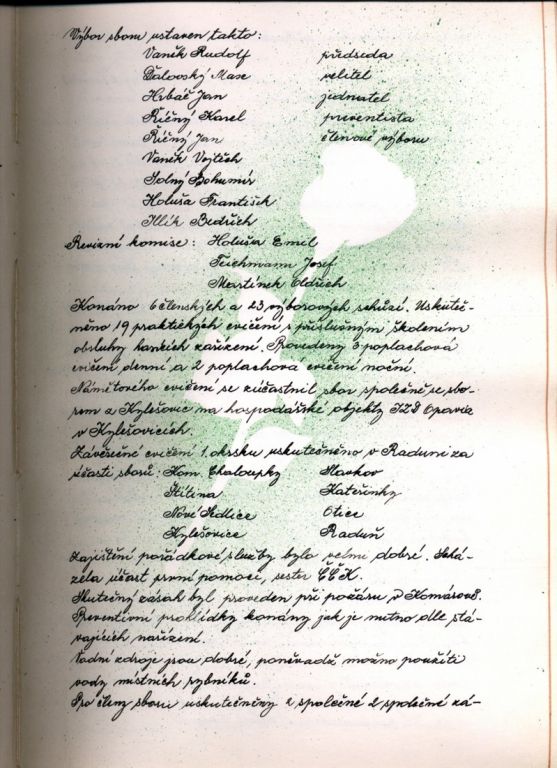 Výbor sboru ustaven takto:
Vaněk Rudolf předseda
Ďalovský Max velitel
Hrbáč Jan jednatel
Říčný Karel preventista
Říčný Jan členové výboru
Vaněk Vojtěch
Solný Bohumír
Holuša František
Illík Bedřich
Revizní komise: Holuša Emil
Teichmann Josef
Martínek Oldřich
Konáno 6 členských a 23 výborových schůzí. Uskuteč-
něno 19 praktických cvičení s příslušným školením
obsluhy hasících zařízení. Provedeny 3 poplachová
cvičení denní a 2 poplachová cvičení noční.
Námětového cvičení se zúčastnil sbor společně se sbo-
rem z Kylešovic na hospodářské objekty JZD Opavia
v Kylešovicích.
Závěrečné cvičení 1. okrsku uskutečněno v Raduni za
účasti sborů: Kom. Chaloupky Slavkov
Štítina Kateřinky
Nové Sedlice Otice
Kylešovice Raduň
Zajištění pořádkové služby bylo velmi dobré. Schá-
zela účast první pomoci, sester ČČK.
Skutečný zásah byl proveden při požáru v Komárově.
Preventivní prohlídky konány jak je nutno dle stá-
vajících nařízení.
Vodní zdroje jsou dobré, poněvadž možno použíti
vody místních rybníků.
Pro členy sboru uskutečněny 2 společné zá-